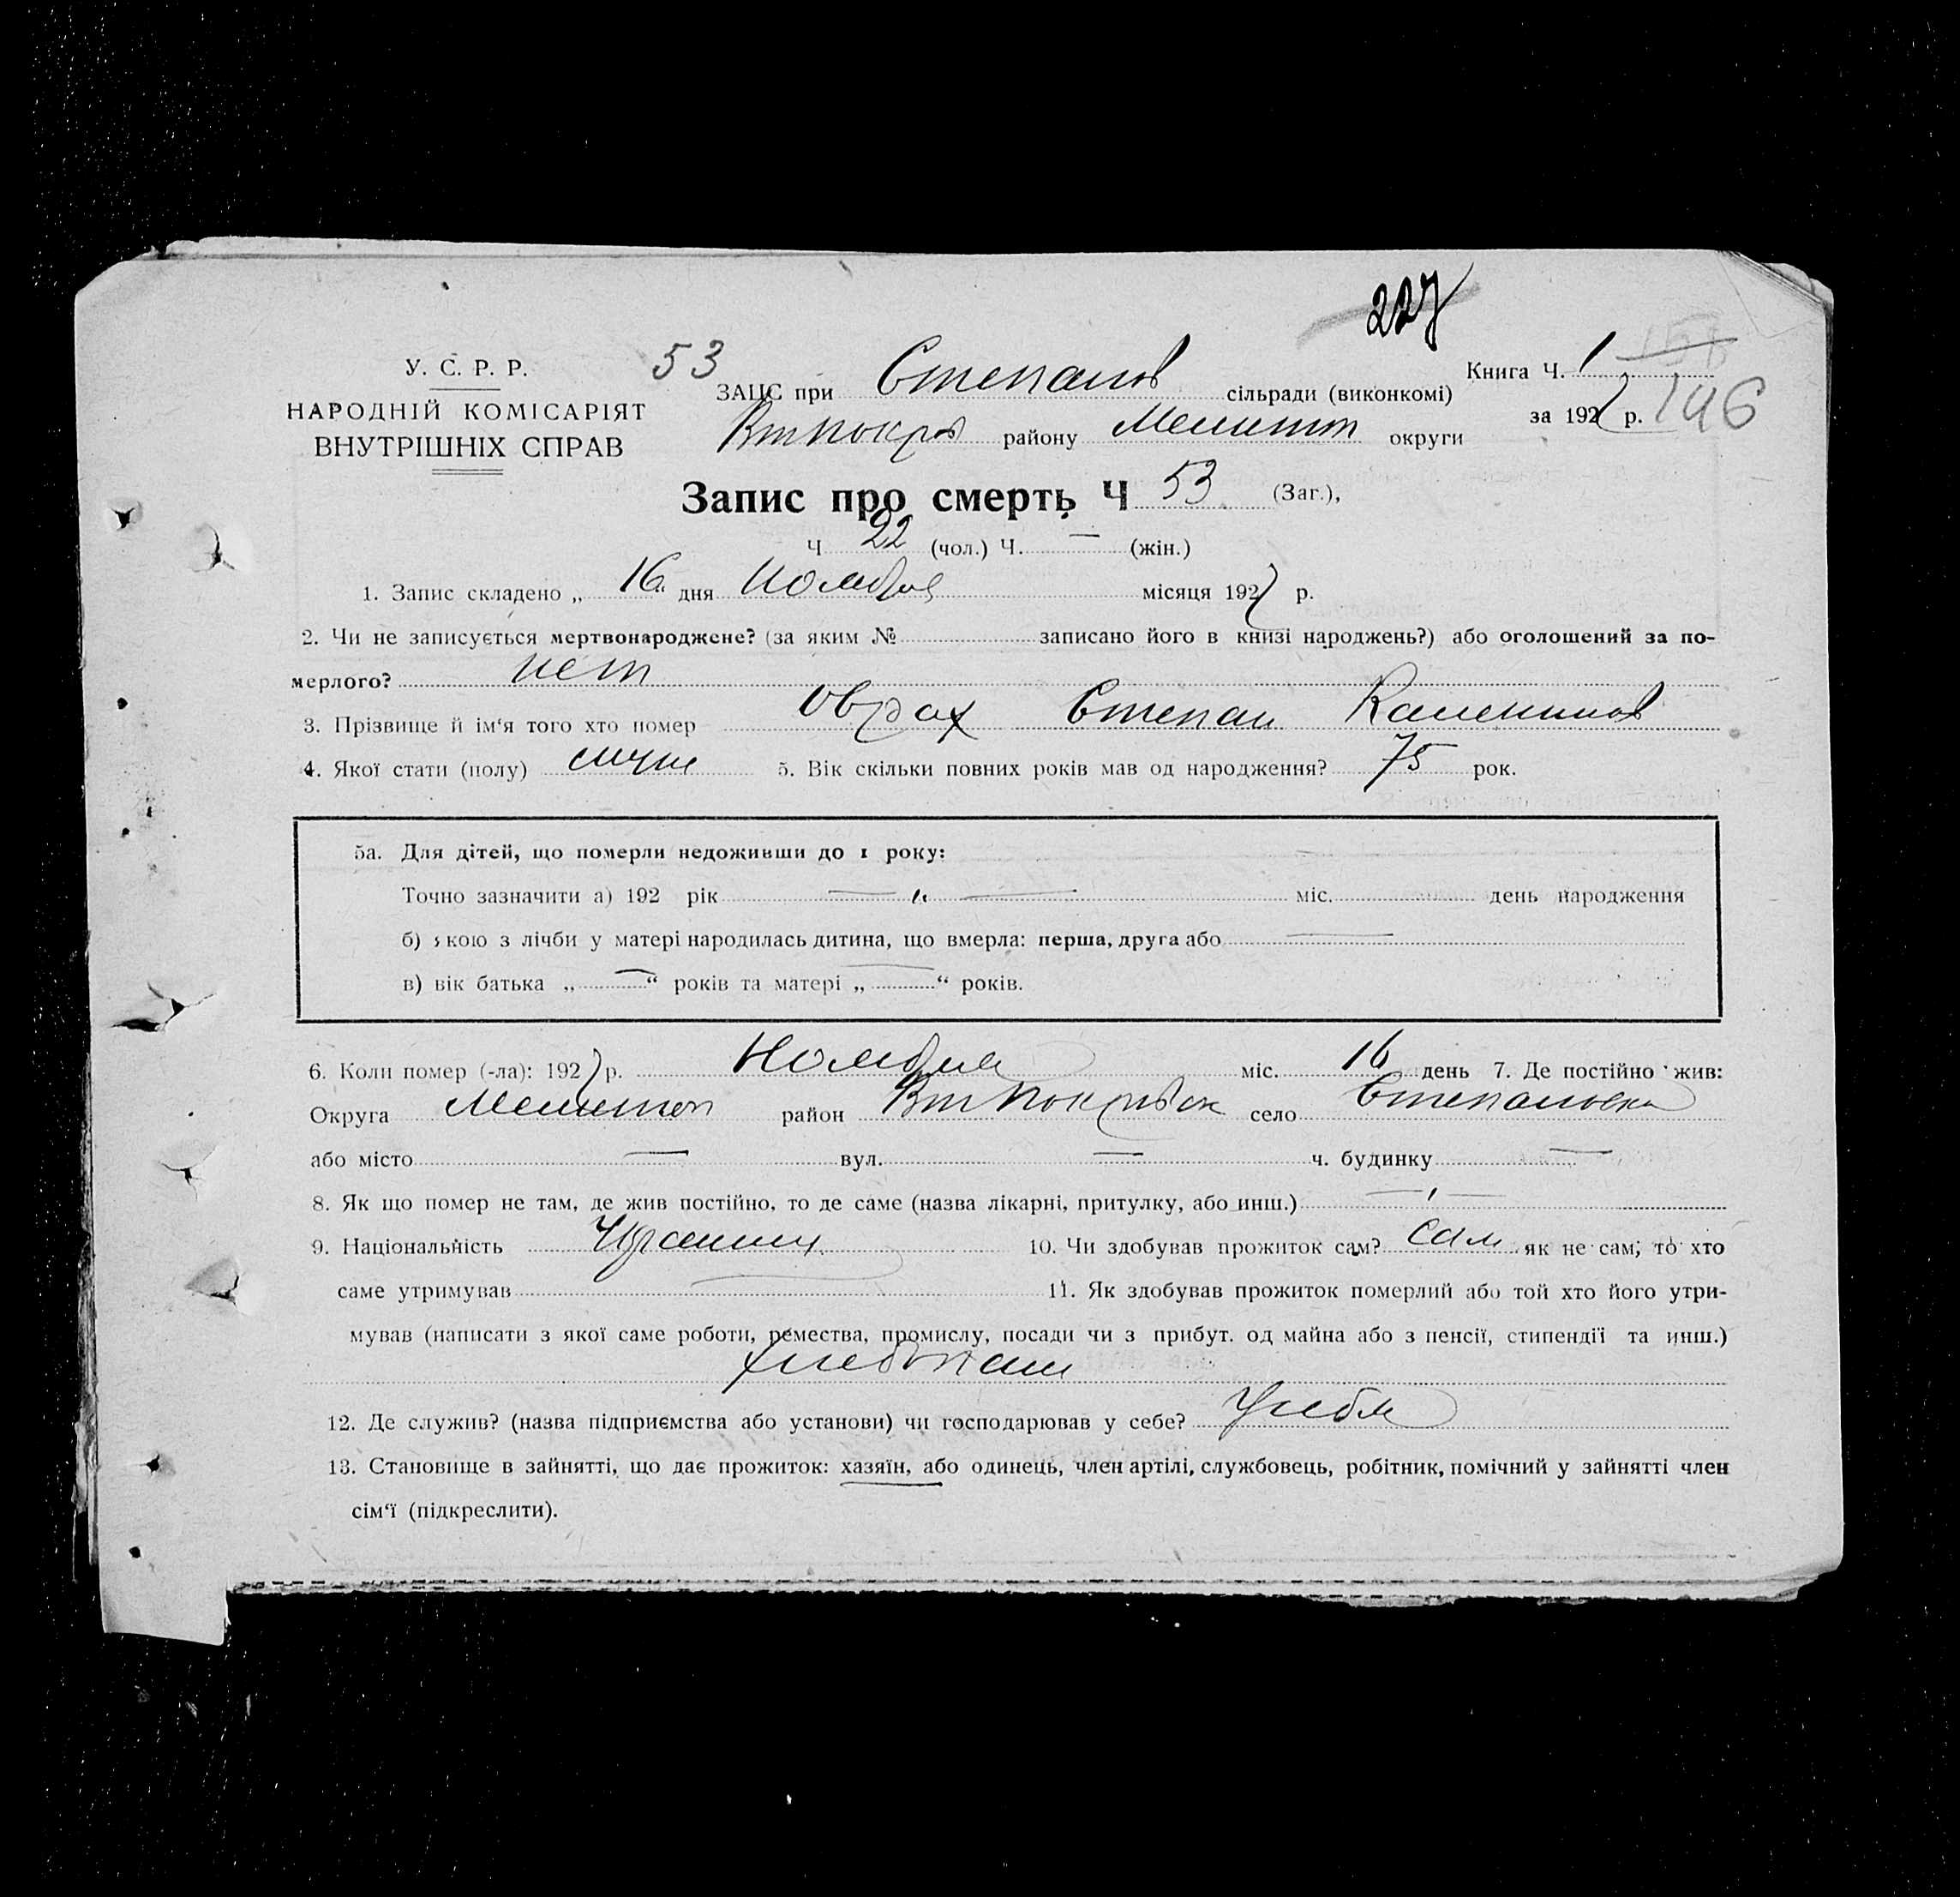 227
У. С. Р. Р.
НАРОДНІЙ КОМІСАРІЯТ
ВНУТРІШНІХ СПРАВ
53
ЗАЦС при Степанов сільради (виконкомі)
Втпокров району Мелитоп округи
Книга Ч. 1
за 1927 р. 196
Запис про смерть Ч 53 (Заг.),
Ч 22 (чол.) Ч. — (жін.)
1. Запис складено „ 16 " дня Ноября місяця 1927 р.
2. Чи не записується мертвонароджене? (за яким № записано його в книзі народжень?) або оголошений за по-
мерлого? нет
3. Прізвище й ім'я того хто помер Оврах Степан Калеников
4. Якої стати (полу) 5. Вік скільки повних років мав од народження? 75 рок.
5а. Для дітей, що померли недоживши до 1 року:
Точно зазначити а) 192 рік — „ — міс. день народження
б) якою з лічби у матері народилась дитина, що вмерла: перша, друга або —
в) вік батька „ — “ років та матері „ — “ років.
6. Коли помер (-ла): 1927 р. Ноября міс. 16 день 7. Де постійно жив:
Округа Мелитоп район Вт Покровск село Степановка
або місто — вул. — ч. будинку —
8. Як що помер не там, де жив постійно, то де саме (назва лікарні, притулку, або инш.) — „ —
9. Національність Украинец 10. Чи здобував прожиток сам? сам як не сам, то хто
саме утримував — 11. Як здобував прожиток померлий або той хто його утри-
мував (написати з якої саме роботи, ремества, промислу, посади чи з прибут. од майна або з пенсії, стипендії та инш.)
хлебопаш
12. Де служив? (назва підприємства або установи) чи господарював у себе? У себя
13. Становище в зайнятті, що дає прожиток: хазяїн, або одинець, член артілі, службовець, робітник, помічний у зайнятті член
сім'ї (підкреслити).